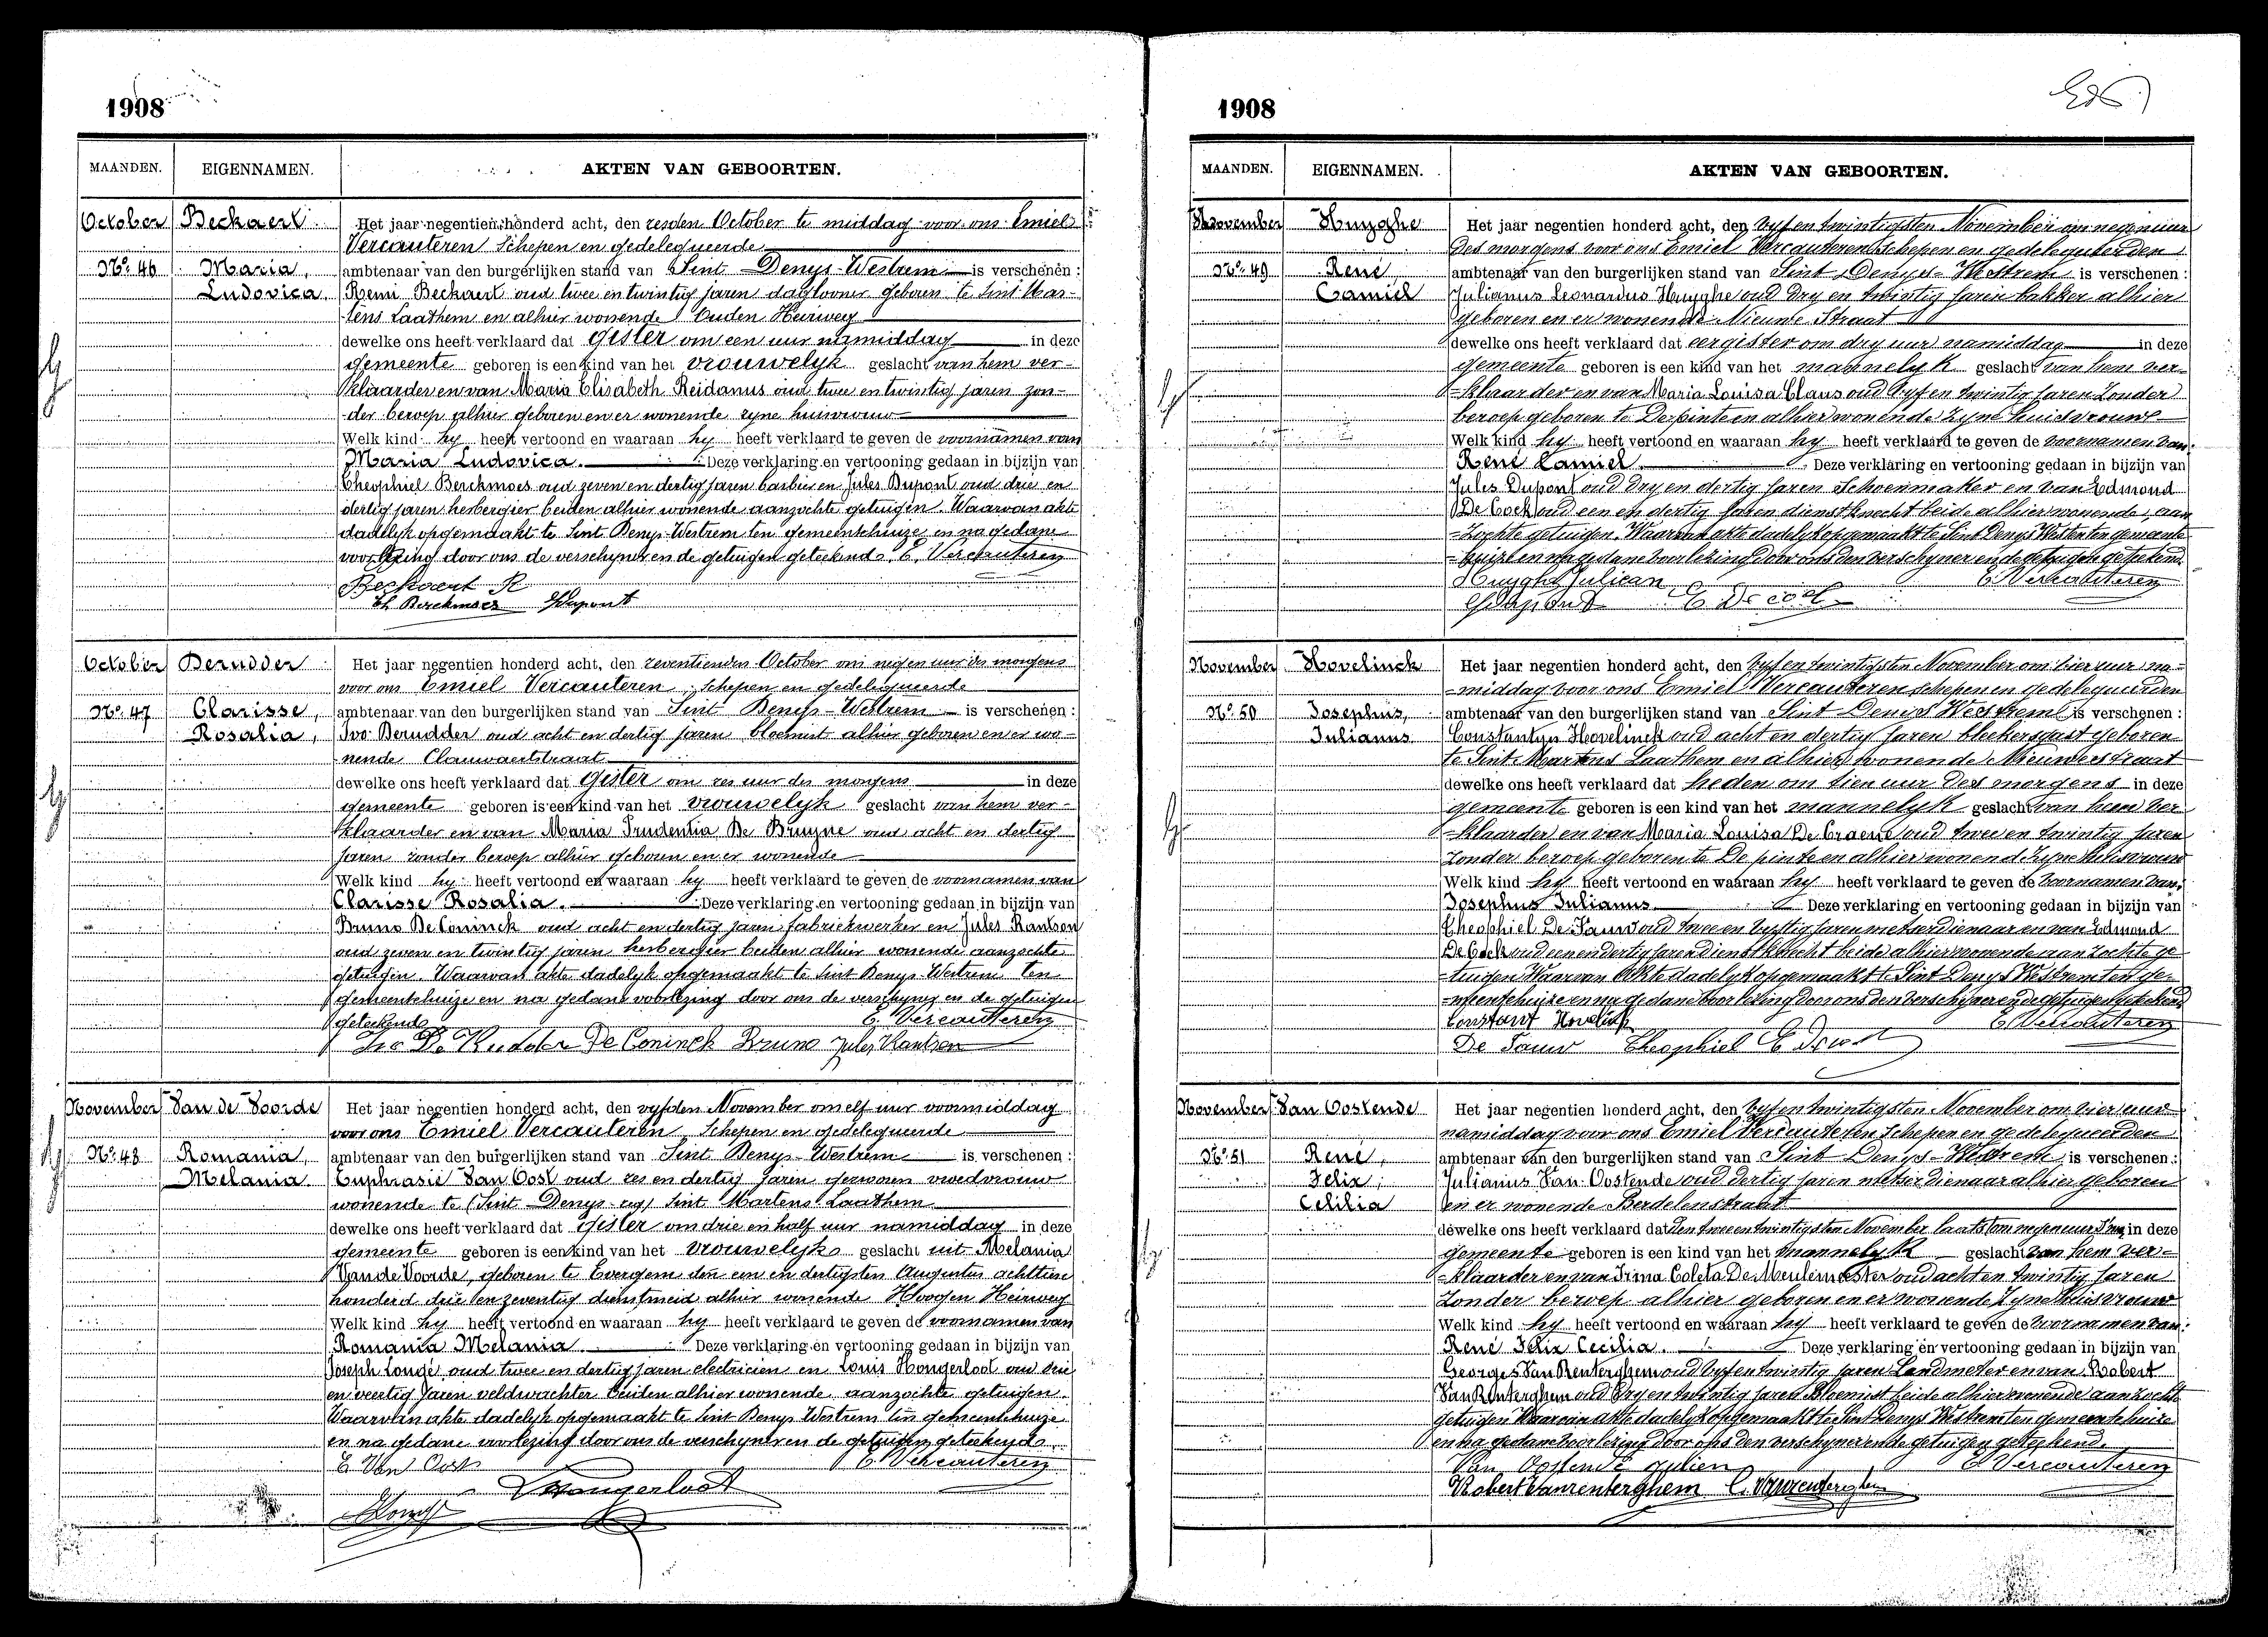 1908
MAANDEN. EIGENNAMEN. AKTEN VAN GEBOORTEN.
October Beckaert Het jaar negentien honderd acht, den zesden October te middag voor ons Emiel
Vercauteren Schepen en gedelegueerde
No. 46 Maria, ambtenaar van den burgerlijken stand van Sint Denys-Westrem is verschenen :
Ludovica. Remi Beckaert oud twee en twintig jaren daglooner geboren te Sint Mar-
tens Laathem en alhier wonende Ouden Heirweg
dewelke ons heeft verklaard dat gister om een uur namiddag in deze
gemeente geboren is een kind van het vrouwelyk geslacht van hem ver-
klaarder en van Maria Elisabeth Reidanus oud twee en twintig jaren zon-
der beroep alhier geboren en er wonende zyne huisvrouw
Welk kind hy heeft vertoond en waaraan hy heeft verklaard te geven de voornamen van
Maria Ludovica. Deze verklaring en vertooning gedaan in bijzijn van
Theophiel Berckmoes oud zeven en dertig jaren barbier en Jules Dupont oud drie en
dertig jaren herbergier beiden alhier wonende aanzochte getuigen. Waarvan akte
dadelyk opgemaakt te Sint Denys-Westrem ten gemeentehuize en na gedane
voorlezing door ons de verschyner en de getuigen geteekend. E. Vercauteren
Beckaert R
Th. Berckmoes JDupont
October Derudder Het jaar negentien honderd acht, den zeventienden October om negen uur des morgens
voor ons Emiel Vercauteren, Schepen en gedelegueerde
No. 47 Clarisse, ambtenaar van den burgerlijken stand van Sint Denys-Westrem is verschenen :
Rosalia, Ivo Derudder oud acht en dertig jaren bloemist alhier geboren en er wo-
nende Clauwaertstraat
dewelke ons heeft verklaard dat gister om zes uur des morgens in deze
gemeente geboren is een kind van het vrouwelyk geslacht van hem ver-
klaarder en van Maria Prudentia De Bruyne oud acht en dertig
jaren zonder beroep alhier geboren en er wonende
Welk kind hy heeft vertoond en waaraan hy heeft verklaard te geven de voornamen van
Clarisse Rosalia. Deze verklaring en vertooning gedaan in bijzijn van
Bruno De Coninck oud acht en dertig jaren fabriekwerker en Jules Rantson
oud zeven en twintig jaren herbergier beiden alhier wonende aanzochte
getuigen. Waarvan akte dadelyk opgemaakt te Sint Denys Westrem ten
gemeentehuize en na gedane voorlezing door ons de verschyner en de getuigen
geteekend. E. Vercauteren
Ivo De Rudder De Coninck Bruno Jules Rantson
November Van de Voorde Het jaar negentien honderd acht, den vyfden November om elf uur voormiddag
voor ons Emiel Vercauteren Schepen en gedelegueerde
No. 48 Romania, ambtenaar van den burgerlijken stand van Sint Denys-Westrem is verschenen :
Melania. Euphrasie Van Oost oud zes en dertig jaren gezworen vroedvrouw
wonende te (Sint-Denys-zeg) Sint Martens Laathem
dewelke ons heeft verklaard dat gister om drie en half uur namiddag in deze
gemeente geboren is een kind van het vrouwelyk geslacht uit Melania
Van de Voorde, geboren te Evergem den een en dertigsten Augustus achttien
honderd drie en zeventig dienstmeid alhier wonende Hoogen Heirweg
Welk kind hy heeft vertoond en waaraan hy heeft verklaard te geven de voornamen van
Romania Melania. Deze verklaring en vertooning gedaan in bijzijn van
Joseph Longé oud twee en dertig jaren electricien en Louis Hongerloot oud drie
en veertig jaren veldwachter beiden alhier wonende, aanzochte getuigen.
Waarvan akte dadelyk opgemaakt te Sint Denys Westrem ten gemeentehuize
en na gedane voorlezing door ons de verschyner en de getuigen geteekend.
E Van Oost E. Vercauteren
Hongerloot
1908
MAANDEN. EIGENNAMEN. AKTEN VAN GEBOORTEN.
November Huyghe Het jaar negentien honderd acht, den vyf en twintigsten November om negen uur
des morgens voor ons Emiel Vercauteren schepen en gedelegueerden
No. 49 René ambtenaar van den burgerlijken stand van Sint Denys-Westrem is verschenen :
Camiel Julianus Leonardus Huyghe oud dry en twintig jaren bakker alhier
geboren en er wonende Nieuwe Straat
dewelke ons heeft verklaard dat eergister om dry uur namiddag in deze
gemeente geboren is een kind van het mannelyk geslacht van hem ver-
-klaarder en van Maria Louisa Claus oud vyf en twintig jaren Zonder
beroep geboren te Depinte en alhier wonende zyne huisvrouw
Welk kind hy heeft vertoond en waaraan hy heeft verklaard te geven de voornamen van
René Camiel. Deze verklaring en vertooning gedaan in bijzijn van
Jules Dupont oud dry en dertig jaren Schoenmaker en van Edmond
De Cock oud een en dertig jaren dienstknecht beide alhier wonende, aan
-zochte getuigen. Waarvan akte dadelyk opgemaakt te Sint Denys Westrem ten gemeente
-huize en na gedane voorlezing door ons den verschyner en de getuigen geteekend.
Huyghe Julican E. Vercauteren
JDupont E De cock
November Hovelinck Het jaar negentien honderd acht, den vyf en twintigsten November om vier uur na-
-middag voor ons Emiel Vercauteren schepen en gedelegueerden
No. 50 Josephus, ambtenaar van den burgerlijken stand van Sint Denis Westrem is verschenen :
Julianus Constantyn Hovelinck oud acht en dertig jaren bleekersgast geboren
te Sint Martens Laathem en alhier wonende Nieuwerstraat
dewelke ons heeft verklaard dat heden om tien uur des morgens in deze
gemeente geboren is een kind van het mannelyk geslacht van hem ver
-klaarder en van Maria Louisa De Craene oud twee en twintig jaren
zonder beroep geboren te De pinte en alhier wonend zyne huisvrouw
Welk kind hy heeft vertoond en waaraan hy heeft verklaard te geven de voornamen van
Josephus Julianus Deze verklaring en vertooning gedaan in bijzijn van
Theophiel De Pauw oud twee en vyftig jaren metserdienaar en van Edmond
De Cock oud een en dertig jaren dienstknecht beide alhier wonende aanzochte ge
-tuigen Waarvan Akte dadelyk opgemaakt te Sint Denys Westrem ten ge-
-meentehuize en na gedane voorlezing door ons den verschyner en de getuigen geteekend
Constant Hovelinck E. Vercauteren
De Pauw Theophiel E De cock
November Van Oostende Het jaar negentien honderd acht, den vyf en twintigsten November om vier uur
namiddag voor ons Emiel Vercauteren Schepen en gedelegueerden
No. 51 René, ambtenaar van den burgerlijken stand van Sint Denys-Westrem is verschenen :
Felix, Julianus Van Oostende oud dertig jaren metser dienaar alhier geboren
Cecilia en er wonende Berdelenstraat
dewelke ons heeft verklaard dat den twee en twintigsten November laatst om negen uur in deze
gemeente geboren is een kind van het mannelyk geslacht van hem ver-
-klaarder en van Irma Coleta De Meulemeester oud acht en twintig jaren
zonder beroep alhier geboren en er wonende zyne huisvrouw
Welk kind hy heeft vertoond en waaraan hy heeft verklaard te geven de voornamen van:
René Felix Cecilia. Deze verklaring en vertooning gedaan in bijzijn van
Georges Van Renterghem oud vyf en twintig jaren Landmeter en van Robert
Van Renterghem oud dry en twintig jaren Bloemist beide alhier wonende aanzocht
getuigen Waarvan akte dadelyk opgemaakt te Sint Denys Westrem ten gemeentehuize
en na gedane voorlezing door ons den verschyner en de getuigen geteekend.
Van Oostende Julien E. Vercauteren
Robert Vanrenterghem G. Vanrenterghem